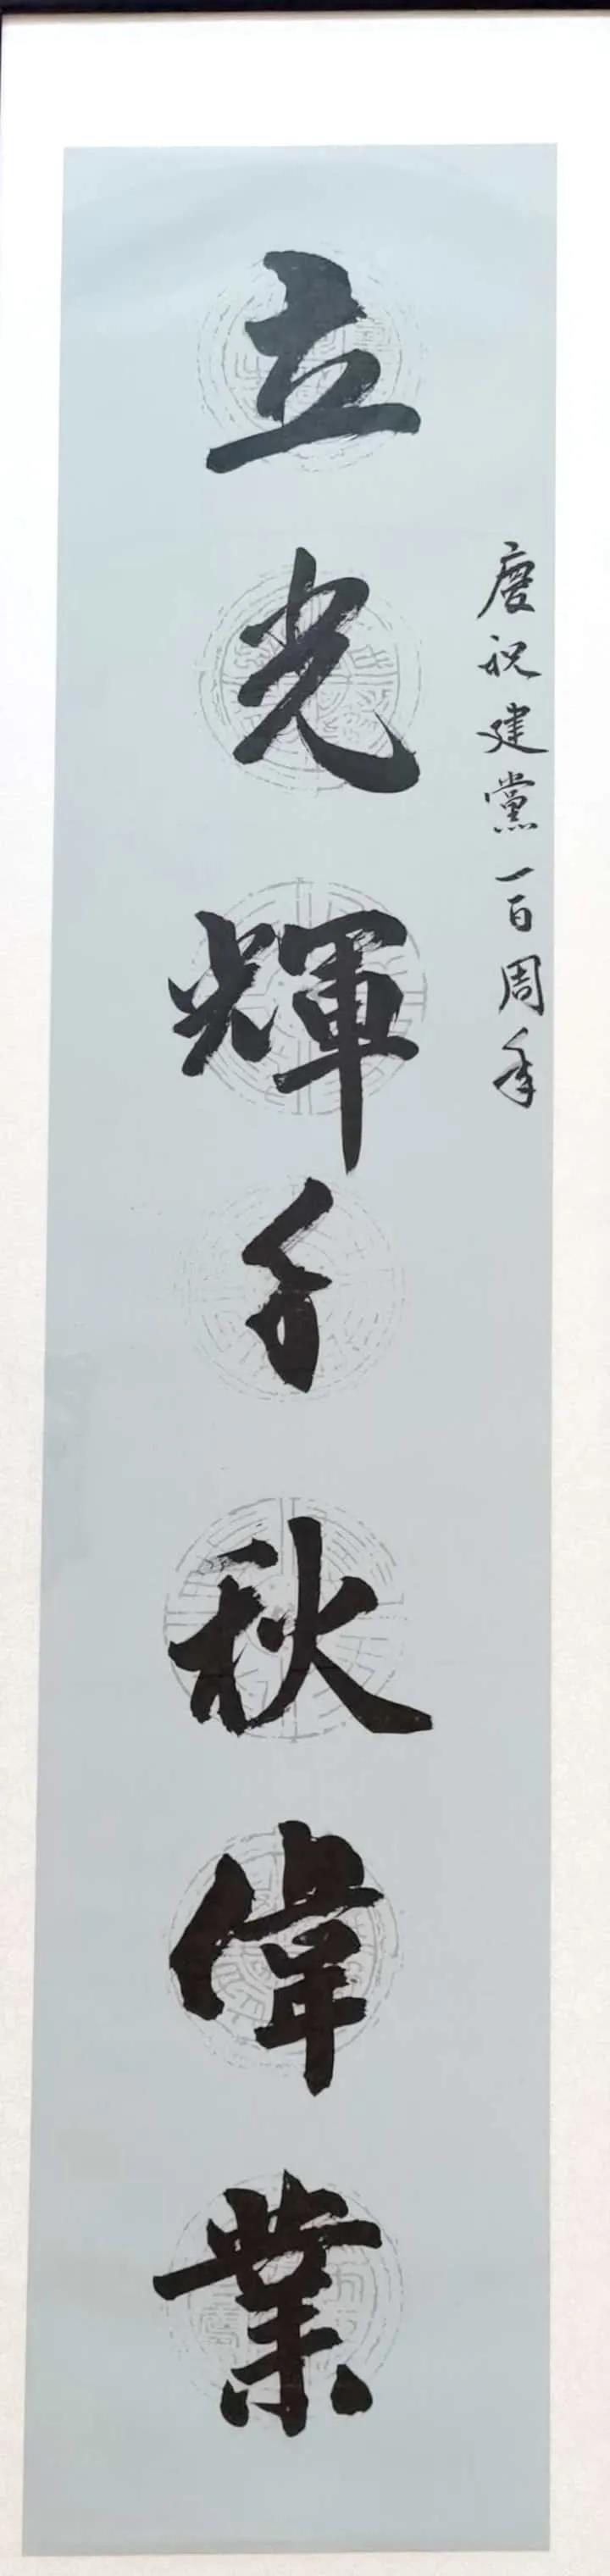 慶祝建黨一百周年
立光輝千秋偉業